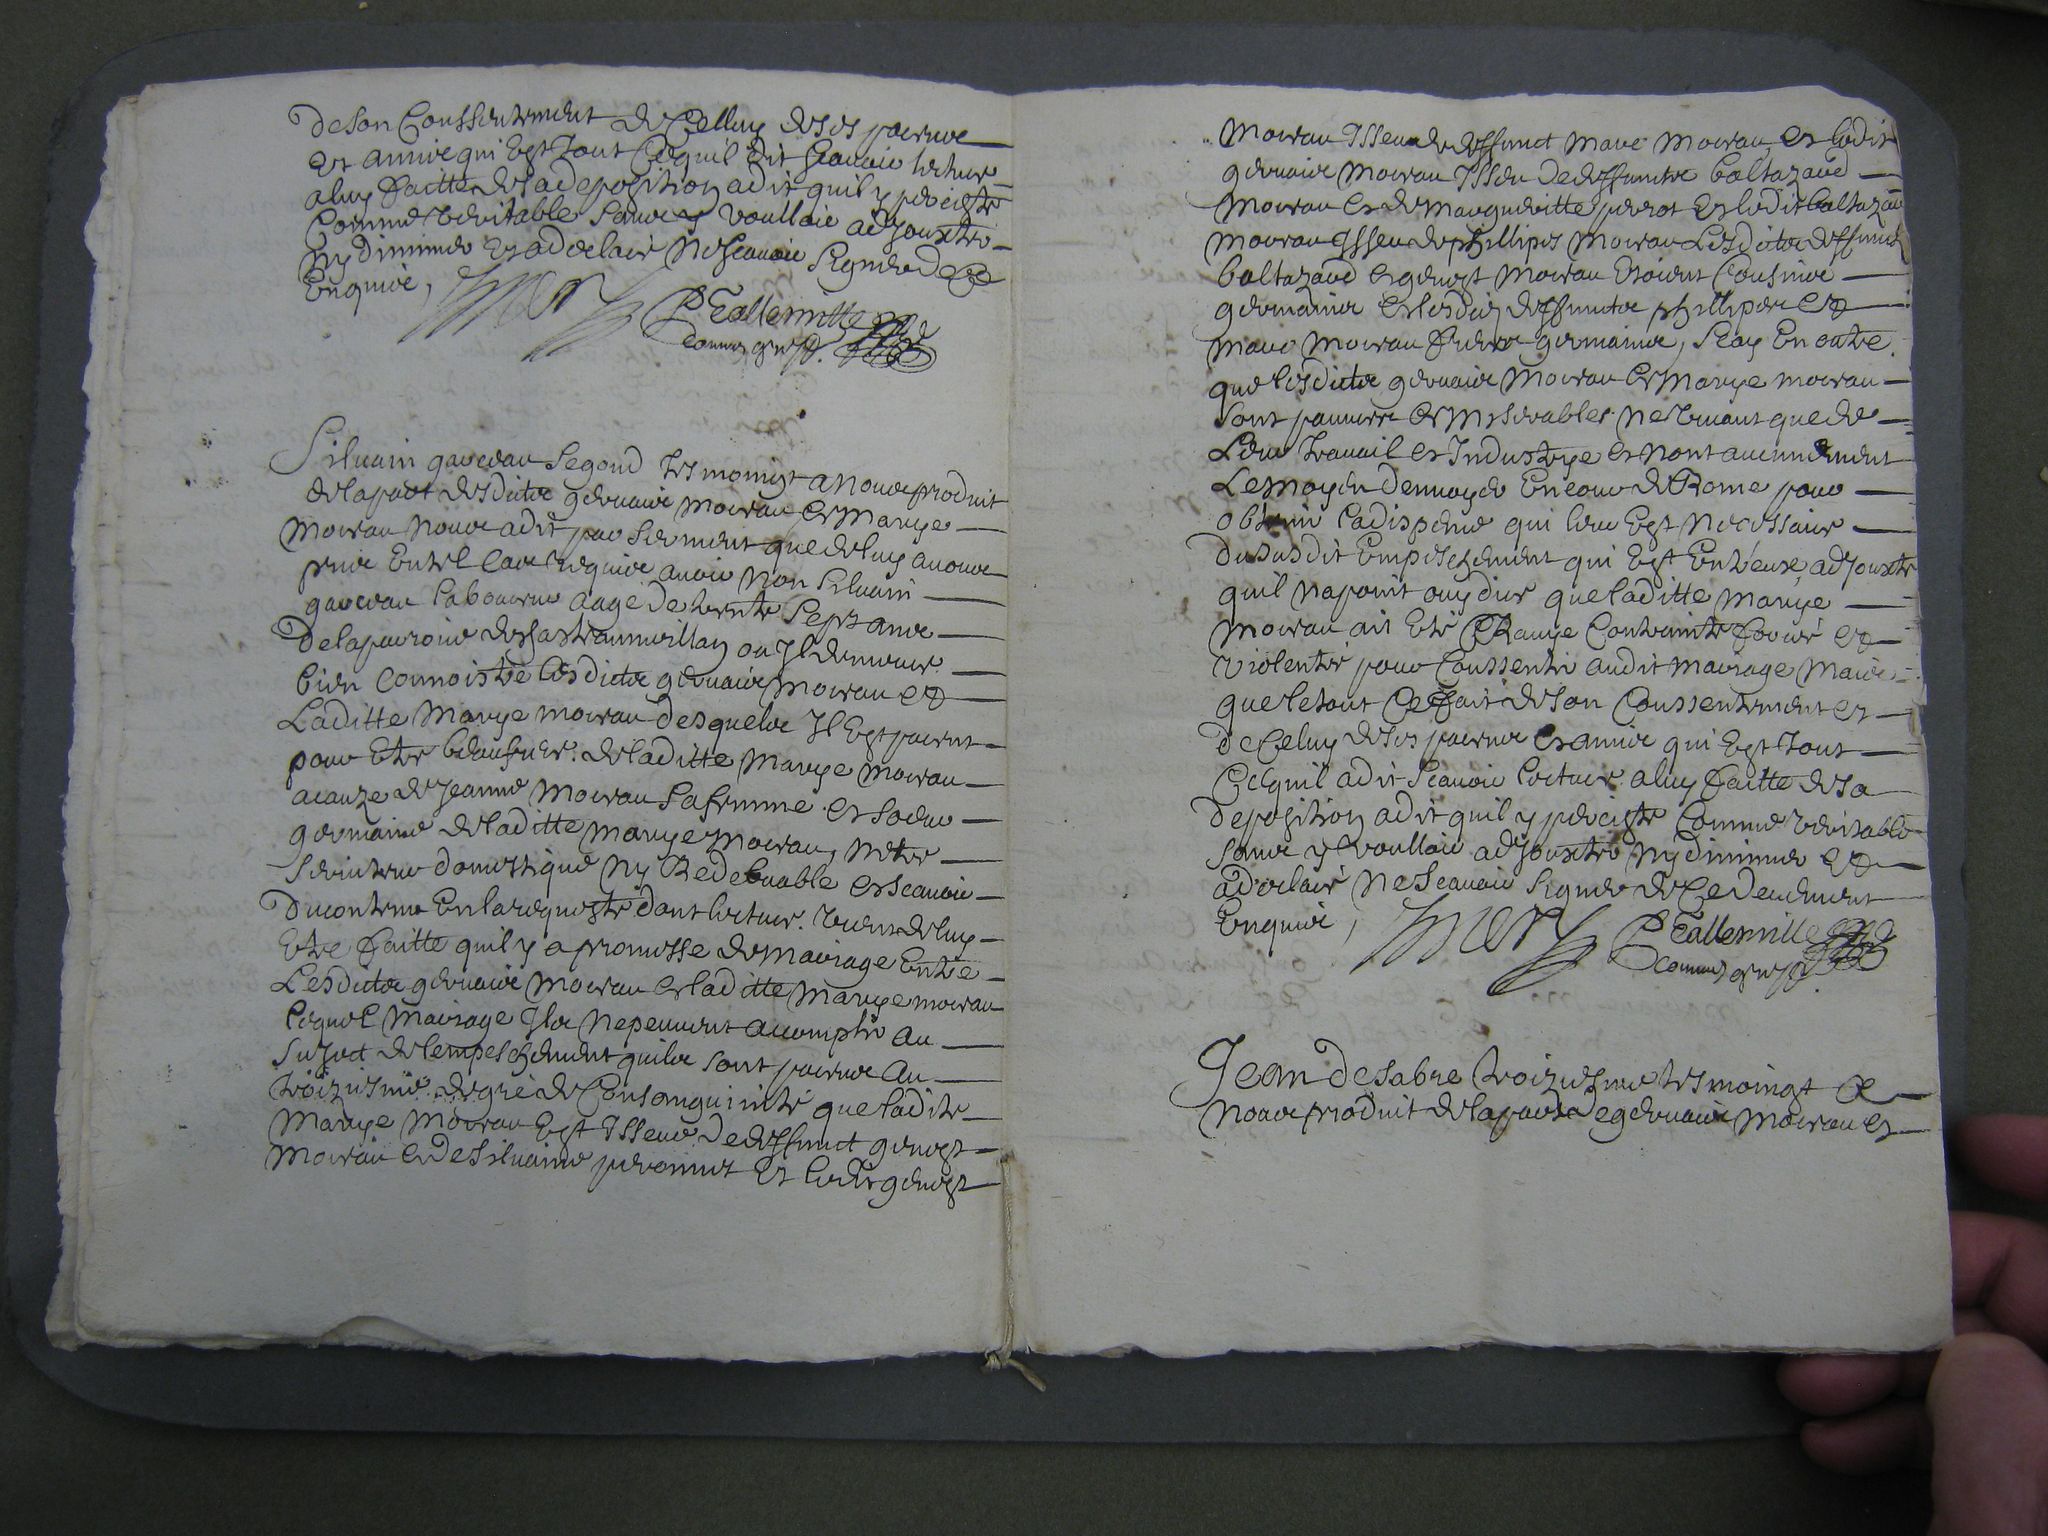 de son Conssentement de Celluy de ses parens
et amis qui Est Tout Ce quil dit scavoir lecture
a luy faitte de sa deposition a dit quil y perciste
Comme veritable sans y voulloir adjouxter
ny diminuer Et a declaré ne scavoir signer de ce
Enquis,
P Tallemitte
commis greff.
Silvain gaveau segond tesmoingt a nous produit
de la part desdicts gervais moreau et marye
moreau nous a dit par serment que de luy avons
pris Entel Cas requis avoir non silvain
gaveau laboureur aagé de trente sept ans
de la parroisse de ou Il demeure
bien connoistre lesdicts gervais moreau et
Laditte marye moreau desquels Il Est parent
pour Etre beaufrere de laditte marye moreau
a cauze de Jeanne moreau sa femme et soeur
germaine de laditte marye moreau, netre
serviteur domestique ny Redebvable et scavoir
du contenu En la requeste dont lecture vient de luy
Etre faitte quil y a promesse de mariage Entre
Lesdicts gervais moreau et laditte marye moreau
lequel mariage Ils ne peuvent acomplir au
suject de lempeschement quils sont parens au
troiziesme degré de Consanguinité que ladite
marye moreau Est Isseue de deffunct genest
moreau et de silvaine peronnet Et ledit genest
moreau Isseu de deffunct marc moreau, et ledit
gervais moreau Isseu de deffuncts baltazard
moreau et de margueritte perot et ledit baltazar
moreau Isseu de phillipes moreau Lesdicts deffuncts
baltazard et genest moreau Etoient Cousins
germains et lesdits deffuncts phillipes et
marc moreau freres germains, scay En outre
que lesdicts gervais moreau et marye moreau
sont pauvres et miserables ne vivant que de
Leur travail et Industrye et nont aucunement
Le moyen denvoyer En cour de Rome pour
obtenir la dispense qui leur Est necessaire
du susdit Empeschement qui Est Entreux, adjouxte
quil na point ouy dire que laditte marye
moreau ait Eté Ravye Contrainte forcée et
violentée pour Conssentir audit mariage mais
que le tout Ce fait de son Conssentement et
de Celuy de ses parens et amis qui Est Tout
Ce quil a dit scavoir lecture a luy faitte de sa
deposition a dit quil y perciste Comme veritable
sans y voulloir adjouxter ny diminuer et
a declaré ne scavoir signer de Ce deuement
Enquis,
P Tallemitte
commis greff.
Jean desabre troiziesme tesmoingt a
nous produit de la part de gervais moreau et